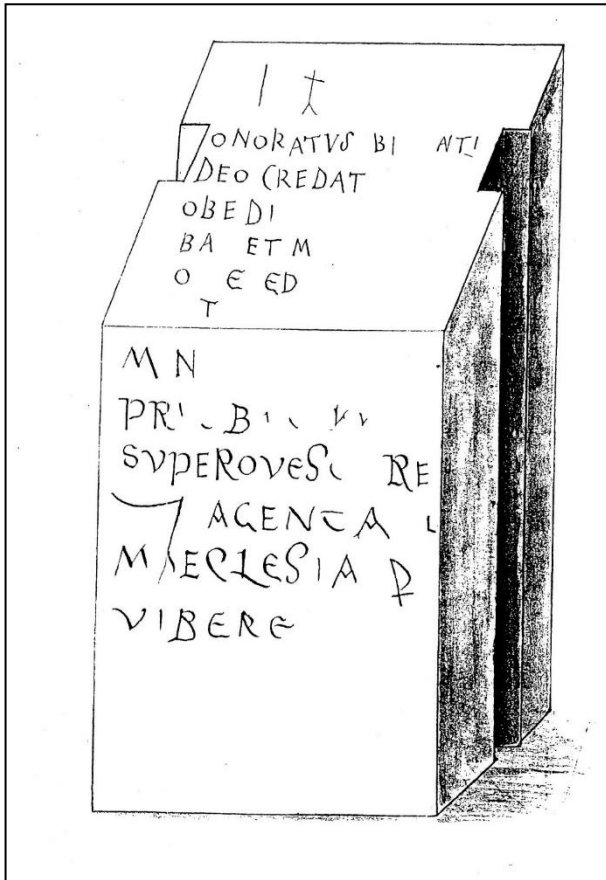 ONORATVS BI NTI
DEO CREDAT
OBEDI
BA ET M
O E ED
T
M N
PR B
SVPEROVES RE
AGENTA L
M ECLESIA
VIBERE